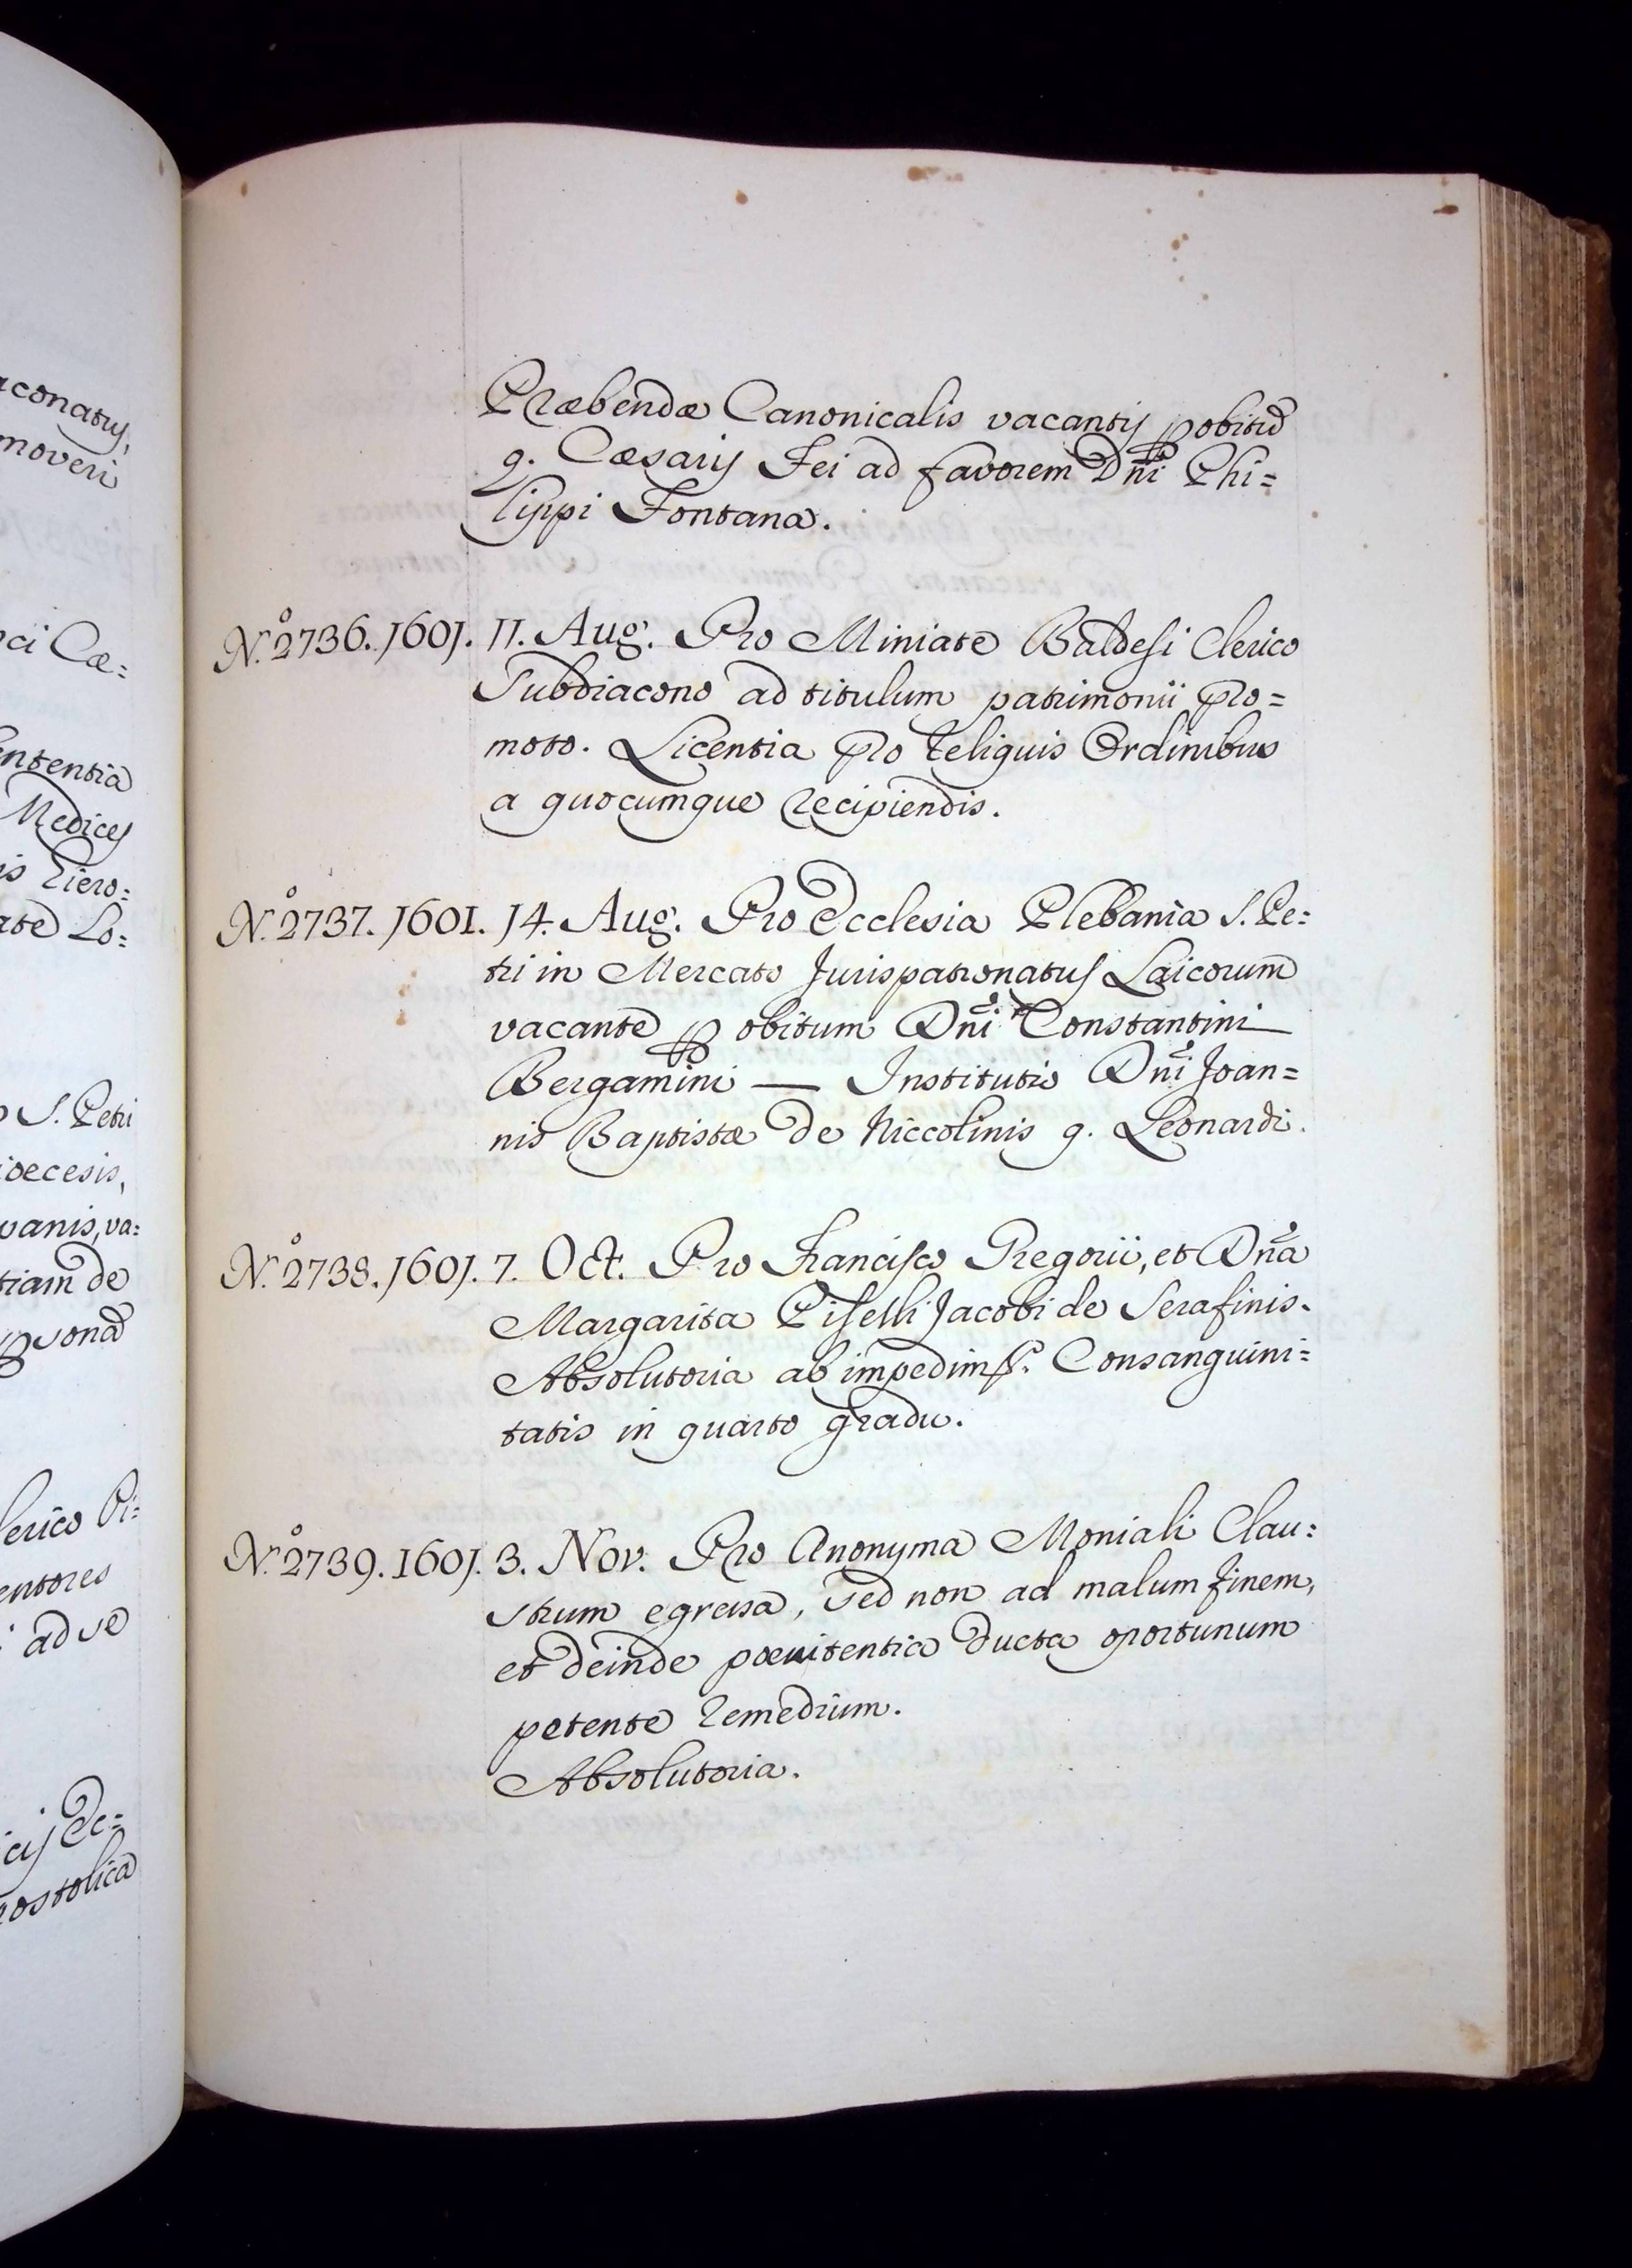 aconatus,
moveri
ci Cæ=
entensia
Medices
is Hiero=
ate Lo=
S. Petri
ioecesis,
vanis, va=
tiam de
psona
lerico Pi=
entores
ad se
cis Ec=
postolica
Præbendæ Canonicalis vacantis p obitũ
q. Cæsaris Fei ad favorem Dñi Phi=
lippi Fontana.
N.º 2736. 1601. 11. Aug. Pro Miniate Baldesi Clerico
Subdiacono ad titulum patrimonii pro=
moto. Licentia pro reliquis Ordinibus
a quocumque recipiendis.
N.º 2737. 1601. 14. Aug. Pro Ecclesia Plebania S. Pe=
tri in Mercato Jurispatronatus Laicorum
vacante p obitum Dñi Constantini
Bergamini — Institutio Dñi Joan=
nis Baptistæ de Niccolinis q. Leonardi.
N.º 2738. 1601. 7. Oct. Pro Francisco Gregorii, et Dña
Margarita Piselli Jacobi de Serafinis.
Absolutoria ab Consanguini=
tatis in quarto gradu.
N.º 2739. 1601. 3. Nov. Pro Anonyma Moniali Clau=
strum egressa, sed non ad malum finem,
et deinde pœnitentia ducta oportunum
petente remedium.
Absolutoria.